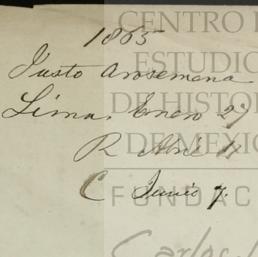 1865
Justo Arosemena
Lima, Enero 27
R Abril 11
C Junio 7.
CENTRO
ESTUDIO
DE HISTO
DE MÉXI
FUNDAC
Carlos